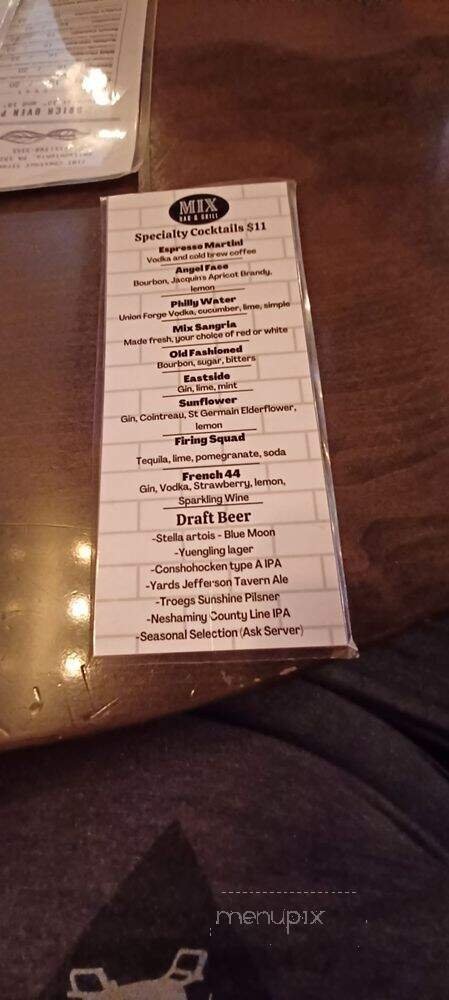 BRICK OVEN P
MIX
BAR & GRILL
Specialty Cocktails $11
Espresso Martini
Vodka and cold brew coffee
Angel Face
Bourbon, Jacquin's Apricot Brandy,
lemon
Philly Water
Union Forge Vodka, cucumber, lime, simple
Mix Sangria
Made fresh, your choice of red or white
Old Fashioned
Bourbon, sugar, bitters
Eastside
Gin, lime, mint
Sunflower
Gin, Cointreau, St Germain Elderflower,
lemon
Firing Squad
Tequila, lime, pomegranate, soda
French 44
Gin, Vodka, Strawberry, lemon,
Sparkling Wine
Draft Beer
-Stella artois - Blue Moon
-Yuengling lager
-Conshohocken type A IPA
-Yards Jefferson Tavern Ale
-Troegs Sunshine Pilsner
-Neshaming County Line IPA
-Seasonal Selection (Ask Server)
menupix